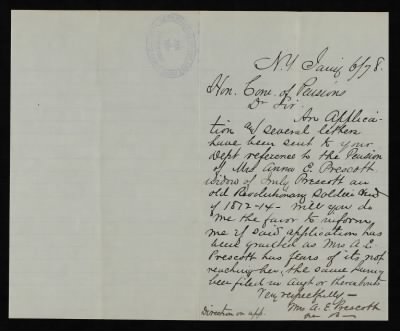 N.Y Jany 6/78.
Hon. Com. of Pensions
Dr Sir.
An Applica-
tion & several letters
have been sent to your
Dept reference to the Pension
of Mrs Anna E. Prescott
widow of Prescott an
old Revolutionary Soldier
of 1812-14- will you do
me the favor to inform
me if said application has
been granted as Mrs A. E.
Prescott has fears of its not
reaching her, the same having
been filed in Augt or thereabouts
Very respectfully-
Mrs A. E Prescott
Direction on app.